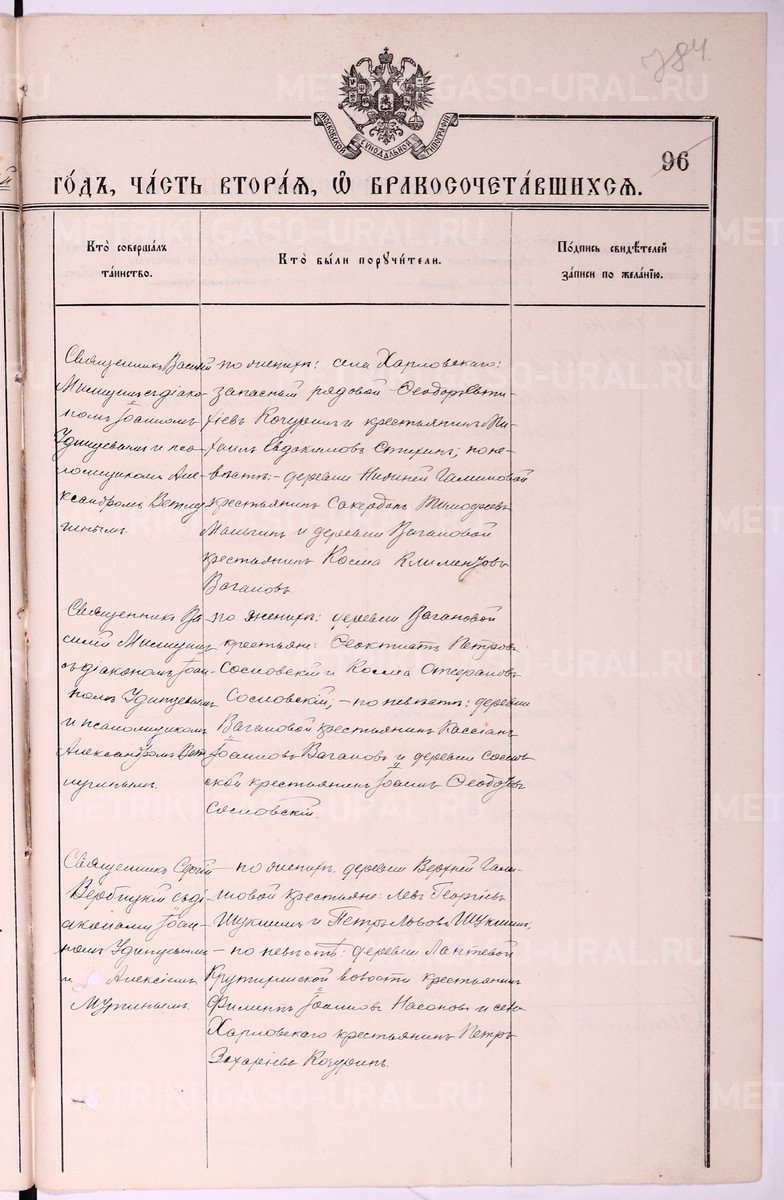 784
МОСКОВСКОЙ СѴНОДАЛЬНОЙ ТИПОГРАФІИ
96
ГО́ДЪ, ЧА́СТЬ ВТОРА́Я, Ѽ БРАКОСОЧЕТА́ВШИХСЯ.
Кто̀ соверша́лъ
та́инство.
Кто̀ бы́ли поручи́тели.
По́дпись свидѣ́телей
за́писи по жела́нїю.
Священникъ Василій
Мишинъ съ діако-
номъ Іоанномъ
Удинцевымъ и пса-
ломщикомъ Але-
ксандромъ Ветлу-
гинымъ.
по женихѣ: села Харловскаго:
запасный рядовой Ѳеодоръ
Кочуринъ и крестьянинъ Ми-
хаилъ Евдокимовъ; по не-
вѣстѣ: деревни Нижней Галишовой
крестьянинъ Сакердонъ Тимофеевъ
Мальгинъ и деревни Вагановой
крестьянинъ Косма Климентовъ
Вагановъ.
Священникъ Ва-
силій Мишинъ
съ діакономъ Іоан-
номъ Удинцевымъ
и псаломщикомъ
Александромъ Вет-
лугинымъ.
по женихѣ: деревни Вагановой
крестьяне: Ѳеоктистъ Петровъ
Сосновскій и Косма Стефановъ
Сосновскій; – по невѣстѣ: деревни
Вагановой крестьянинъ Кассіанъ
Іоанновъ Вагановъ и деревни Соснов-
ской крестьянинъ Іоаннъ Ѳеодоровъ
Сосновскій.
Священникъ Сергій
Вербицкій съ ді-
аконами Іоан-
номъ Удинцевымъ
и Алексіемъ
– по женихѣ: деревни Верхней Гали-
шовой крестьяне: Левъ Георгіевъ
Шукшинъ и Петръ Львовъ Шукшинъ;
– по невѣстѣ: деревни Лаптевой
волости крестьянинъ
Филиппъ Іоанновъ Насоновъ и села
Харловскаго крестьянинъ Петръ
Захаріевъ Кочуринъ.
METRIKI.GASO-URAL.RU